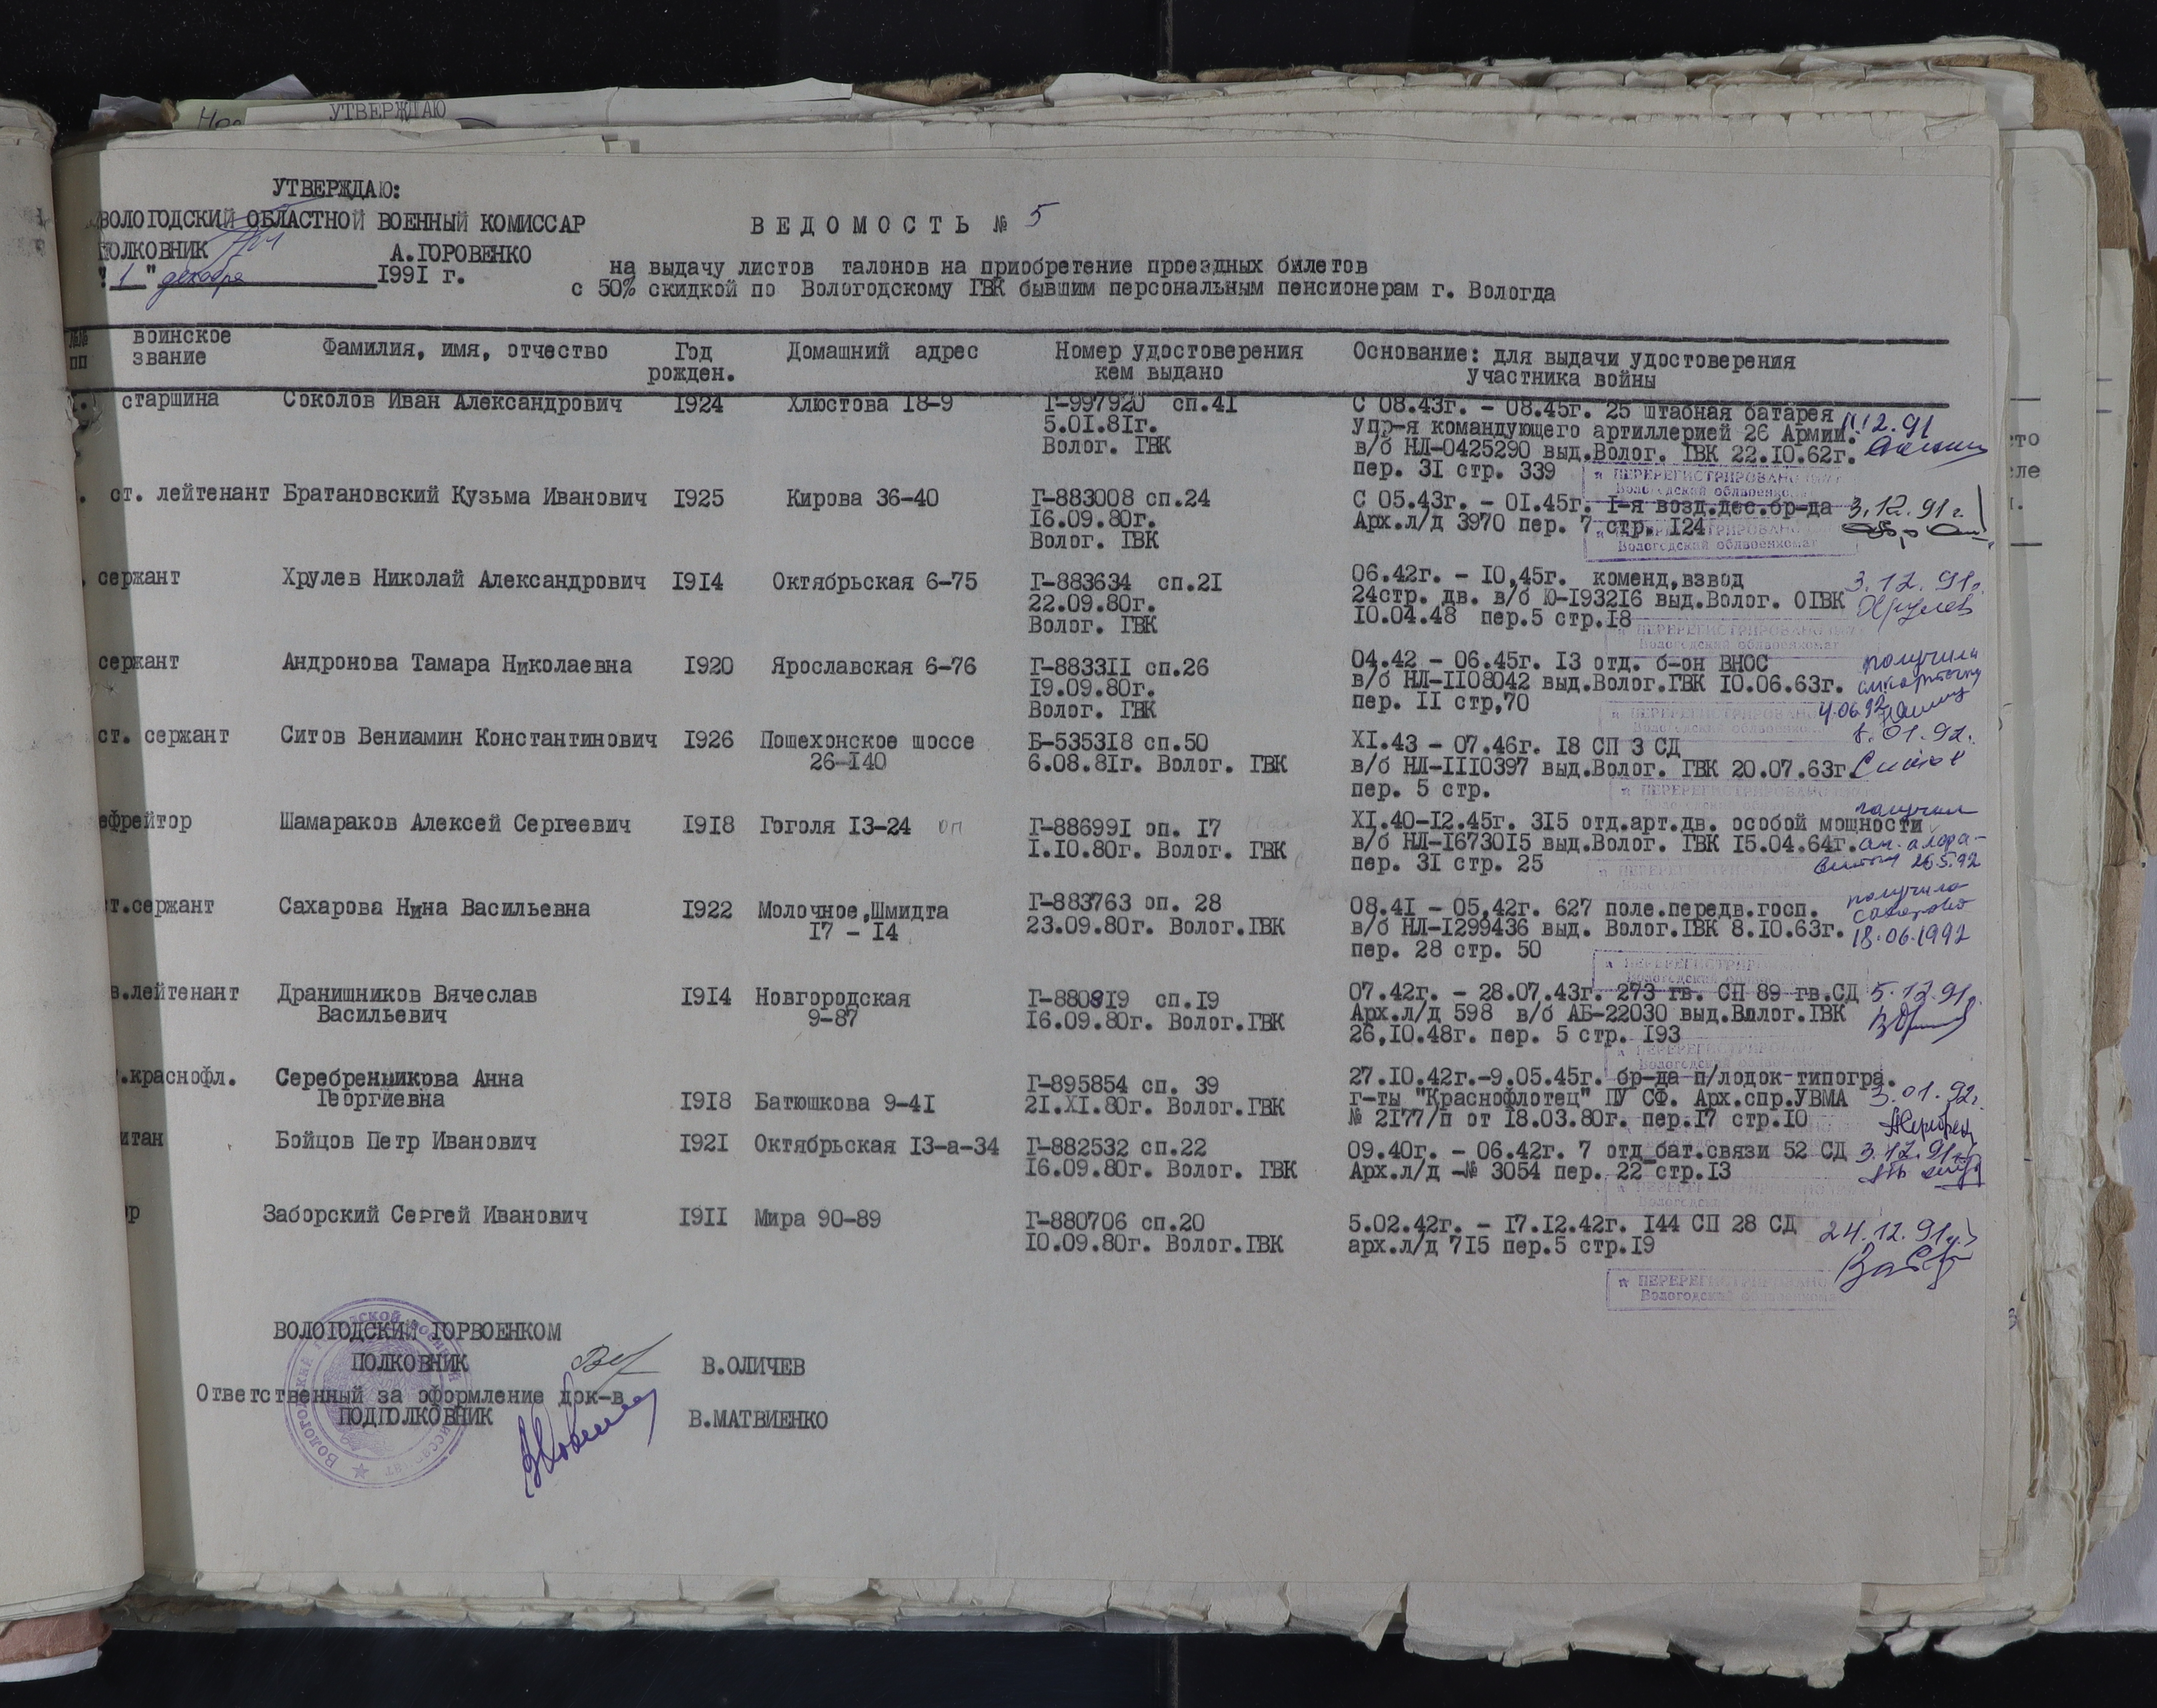 УТВЕРЖДАЮ
УТВЕРЖДАЮ:
ВОЛОГОДСКИЙ ОБЛАСТНОЙ ВОЕННЫЙ КОМИССАР
ПОЛКОВНИК А.ГОРОВЕНКО
"1" декабря 1991 г.
ВЕДОМОСТЬ № 5
на выдачу листов талонов на приобретение проездных билетов
с 50% скидкой по Вологодскому ГВК бывшим персональным пенсионерам г. Вологда
№№ пп воинское звание Фамилия, имя, отчество Год рожден. Домашний адрес Номер удостоверения кем выдано Основание: для выдачи удостоверения участника войны
старшина Соколов Иван Александрович 1924 Хлюстова 18-9 Г-997920 сп.41 С 08.43г. - 08.45г. 25 штабная батарея
5.01.81г. упр-я командующего артиллерией 26 Армии. 12.91
Волог. ГВК в/б НЛ-0425290 выд.Волог. ГВК 22.10.62г.
пер. 31 стр. 339
ПЕРЕРЕГИСТРИРОВАНО
Вологодский облвоенкомат
ст. лейтенант Братановский Кузьма Иванович 1925 Кирова 36-40 Г-883008 сп.24 С 05.43г. - 01.45г. 1-я возд.дес.бр-да 3.12.91г.
16.09.80г. Арх.л/д 3970 пер. 7 стр. 124
Волог. ГВК
ПЕРЕРЕГИСТРИРОВАНО
Вологодский облвоенкомат
сержант Хрулев Николай Александрович 1914 Октябрьская 6-75 Г-883634 сп.21 06.42г. - 10,45г. коменд,взвод 3.12.91г.
22.09.80г. 24стр. дв. в/б Ю-193216 выд.Волог. ОГВК Хрулев
Волог. ГВК 10.04.48 пер.5 стр.18
ПЕРЕРЕГИСТРИРОВАНО
Вологодский облвоенкомат
сержант Андронова Тамара Николаевна 1920 Ярославская 6-76 Г-883311 сп.26 04.42 - 06.45г. 13 отд. б-он ВНОС получила
19.09.80г. в/б НЛ-1108042 выд.Волог.ГВК 10.06.63г.
Волог. ГВК пер. 11 стр,70 4.06.92
ПЕРЕРЕГИСТРИРОВАНО
ст. сержант Ситов Вениамин Константинович 1926 Пошехонское шоссе Б-535318 сп.50 XI.43 - 07.46г. 18 СП 3 СД 8.01.92г.
26-140 6.08.81г. Волог. ГВК в/б НЛ-1110397 выд.Волог. ГВК 20.07.63г. Ситов
пер. 5 стр.
ПЕРЕРЕГИСТРИРОВАНО
ефрейтор Шамараков Алексей Сергеевич 1918 Гоголя 13-24 оп Г-886991 оп. 17 XI.40-12.45г. 315 отд.арт.дв. особой мощности получил
1.10.80г. Волог. ГВК в/б НЛ-1673015 выд.Волог. ГВК 15.04.64г.
пер. 31 стр. 25 26.5.92
ст.сержант Сахарова Нина Васильевна 1922 Молочное,Шмидта Г-883763 оп. 28 08.41 - 05,42г. 627 поле.передв.госп. получила
17 - 14 23.09.80г. Волог.ГВК в/б НЛ-1299436 выд. Волог.ГВК 8.10.63г. Сахарова
пер. 28 стр. 50 18.06.1992
ПЕРЕРЕГИСТРИРОВАНО
Вологодский облвоенкомат
в.лейтенант Дранишников Вячеслав 1914 Новгородская Г-880819 сп.19 07.42г. - 28.07.43г. 273 гв. СП 89 гв.СД 5.12.91г.
Васильевич 9-87 16.09.80г. Волог.ГВК Арх.л/д 598 в/б АБ-22030 выд.Волог.ГВК
26,10.48г. пер. 5 стр. 193
ПЕРЕРЕГИСТРИРОВАНО
Вологодский облвоенкомат
.краснофл. Серебренникова Анна Г-895854 сп. 39 27.10.42г.-9.05.45г. бр-да п/лодок типогра.
Георгиевна 1918 Батюшкова 9-41 21.XI.80г. Волог.ГВК г-ты "Краснофлотец" ПУ СФ. Арх.спр.УВМА 3.01.92г.
№ 2177/п от 18.03.80г. пер.17 стр.10
итан Бойцов Петр Иванович 1921 Октябрьская 13-а-34 Г-882532 сп.22 09.40г. - 06.42г. 7 отд бат.связи 52 СД 3.12.91г.
16.09.80г. Волог. ГВК Арх.л/д -№ 3054 пер. 22 стр.13
р Заборский Сергей Иванович 1911 Мира 90-89 Г-880706 сп.20 5.02.42г. - 17.12.42г. 144 СП 28 СД 24.12.91г.
10.09.80г. Волог.ГВК арх.л/д 715 пер.5 стр.19
ПЕРЕРЕГИСТРИРОВАНО
Вологодский облвоенкомат
ВОЛОГОДСКИЙ ГОРВОЕНКОМ
ПОЛКОВНИК В.ОЛИЧЕВ
Ответственный за оформление док-в
ПОДПОЛКОВНИК В.МАТВИЕНКО